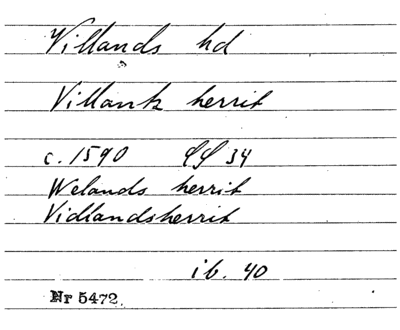 Villands hd
Villantz herrit
c. 1590 SS 34
Welands herrit
Vidlandsherrit
ib. 40
Nr 5472.